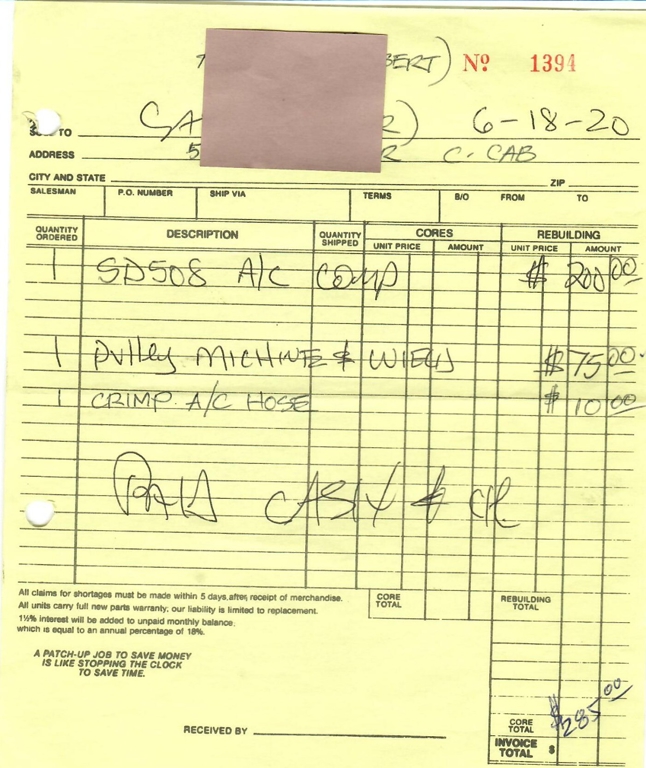 BERT) Nº 1394
SOLD TO 6-18-20
ADDRESS 5 R C-CAB
CITY AND STATE ZIP
SALESMAN P.O. NUMBER SHIP VIA TERMS B/O FROM TO
QUANTITY ORDERED DESCRIPTION QUANTITY SHIPPED CORES REBUILDING
UNIT PRICE AMOUNT UNIT PRICE AMOUNT
1 SD508 A/C COMP $ 200 00
1 PULLEY MACHINE & WIELD $ 75 00
1 CRIMP A/C HOSE $ 10 00
PAID CASH & CK
All claims for shortages must be made within 5 days, after receipt of merchandise.
All units carry full new parts warranty; our liability is limited to replacement.
1½% interest will be added to unpaid monthly balance.
which is equal to an annual percentage of 18%.
CORE TOTAL REBUILDING TOTAL
A PATCH-UP JOB TO SAVE MONEY
IS LIKE STOPPING THE CLOCK
TO SAVE TIME.
RECEIVED BY
CORE TOTAL $285 00
INVOICE TOTAL $